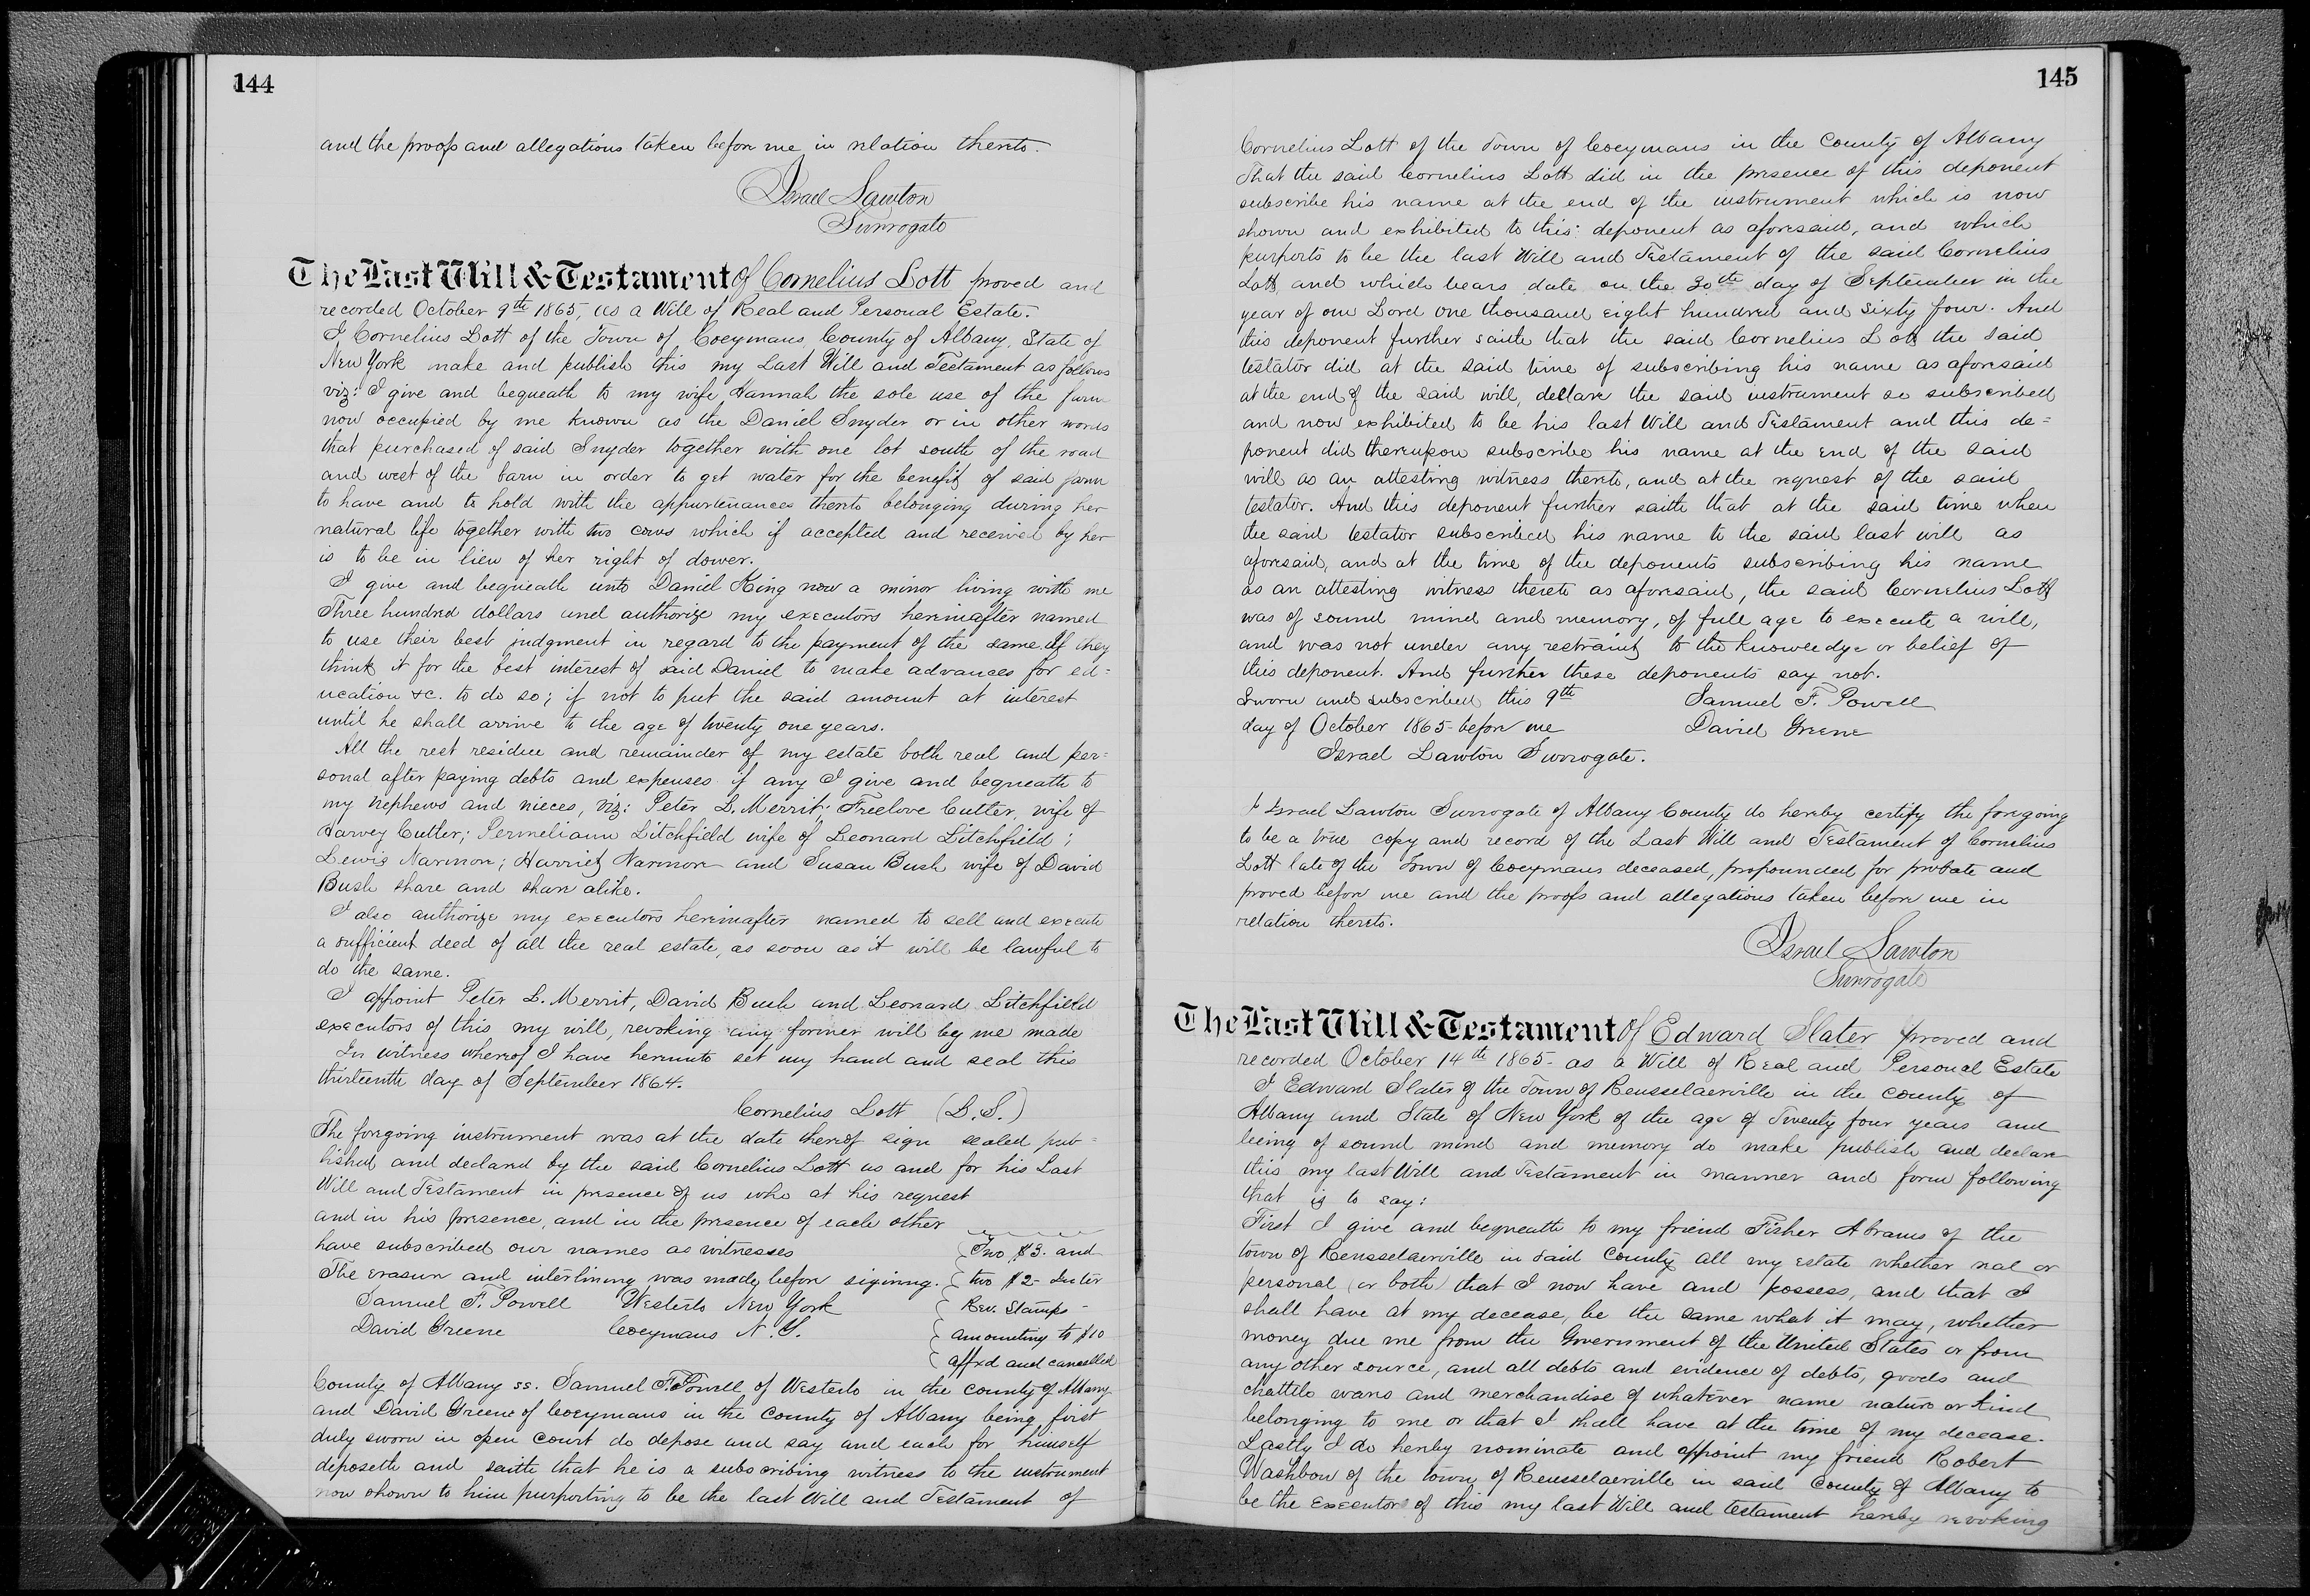 144
and the proofs and allegations taken before me in relation thereto.
Israel Lawton
Surrogate
The Last Will & Testament of Cornelius Lott proved and
recorded October 9th 1865, as a Will of Real and Personal Estate.
I Cornelius Lott of the Town of Coeymans, County of Albany, State of
New York make and publish this my Last Will and Testament as follows
viz: I give and bequeath to my wife Hannah the sole use of the farm
now occupied by me known as the Daniel Snyder or in other words
that purchased of said Snyder together with one lot south of the road
and west of the barn in order to get water for the benefit of said farm
to have and to hold with the appurtenances thereto belonging during her
natural life together with two cows which if accepted and received by her
is to be in lieu of her right of dower.
I give and bequeath unto Daniel King now a minor living with me
Three hundred dollars and authorize my executors hereinafter named
to use their best judgment in regard to the payment of the same. If they
think it for the best interest of said Daniel to make advances for ed=
ucation &c. to do so; if not to put the said amount at interest
until he shall arrive to the age of twenty one years.
All the rest residue and remainder of my estate both real and per=
sonal after paying debts and expenses if any I give and bequeath to
my nephews and nieces, viz: Peter L. Merrit; Freelove Cutler, wife of
Harvey Cutler; Permeliann Litchfield wife of Leonard Litchfield;
Lewis Narmon; Harriet Narmon and Susan Bush wife of David
Bush share and share alike.
I also authorize my executors hereinafter named to sell and execute
a sufficient deed of all the real estate, as soon as it will be lawful to
do the same.
I appoint Peter L. Merrit, David Bush and Leonard Litchfield
executors of this my will, revoking any former will by me made
In witness whereof I have hereunto set my hand and seal this
thirteenth day of September 1864.
Cornelius Lott (L.S.)
The foregoing instrument was at the date thereof sign sealed pub=
lished and declared by the said Cornelius Lott as and for his Last
Will and Testament in presence of us who at his request
and in his presence, and in the presence of each other
have subscribed our names as witnesses
The erasure and interlining was made before signing.
Two $3. and
two $2- Inter
Rev. Stamps-
amounting to $10
affxd and cancelled
Samuel F. Powell Westerlo New York
David Greene Coeymans N.Y.
County of Albany ss. Samuel F. Powell of Westerlo in the county of Albany
and David Greene of Coeymans in the County of Albany being first
duly sworn in open court do depose and say and each for himself
deposeth and saith that he is a subscribing witness to the instrument
now shown to him purporting to be the last Will and Testament of
145
Cornelius Lott of the Town of Coeymans in the County of Albany
That the said Cornelius Lott did in the presence of this deponent
subscribe his name at the end of the instrument which is now
shown and exhibited to this deponent as aforesaid, and which
purports to be the last Will and Testament of the said Cornelius
Lott and which bears date on the 30th day of September in the
year of our Lord one thousand eight hundred and sixty four. And
this deponent further saith that the said Cornelius Lott the said
testator did at the said time of subscribing his name as aforesaid
at the end of the said will, declare the said instrument so subscribed
and now exhibited to be his last Will and Testament and this de=
ponent did thereupon subscribe his name at the end of the said
will as an attesting witness thereto, and at the request of the said
testator. And this deponent further saith that at the said time when
the said testator subscribed his name to the said last will as
aforesaid, and at the time of the deponents subscribing his name
as an attesting witness thereto as aforesaid, the said Cornelius Lott
was of sound mind and memory, of full age to execute a will,
and was not under any restraint to the knowledge or belief of
this deponent. And further these deponents say not.
Sworn and subscribed this 9th Samuel F. Powell
day of October 1865- before me David Greene
Israel Lawton Surrogate.
I Israel Lawton Surrogate of Albany County do hereby certify the foregoing
to be a true copy and record of the Last Will and Testament of Cornelius
Lott late of the Town of Coeymans deceased, propounded for probate and
proved before me and the proofs and allegations taken before me in
relation thereto.
Israel Lawton
Surrogate
The Last Will & Testament of Edward Slater proved and
recorded October 14th 1865- as a Will of Real and Personal Estate
I Edward Slater of the Town of Rensselaerville in the county of
Albany and State of New York of the age of Twenty four years and
being of sound mind and memory do make publish and declare
this my last Will and Testament in manner and form following
that is to say:
First I give and bequeath to my friend Fisher Abrams of the
town of Rensselaerville in said County all my estate whether real or
personal (or both) that I now have and possess, and that I
shall have at my decease, be the same what it may, whether
money due me from the Government of the United States or from
any other source, and all debts and evidence of debts, goods and
chattels wares and merchandise of whatever name nature or kind
belonging to me or that I shall have at the time of my decease.
Lastly I do hereby nominate and appoint my friend Robert
Washbow of the town of Rensselaerville in said County of Albany to
be the Executor of this my last Will and testament hereby revoking